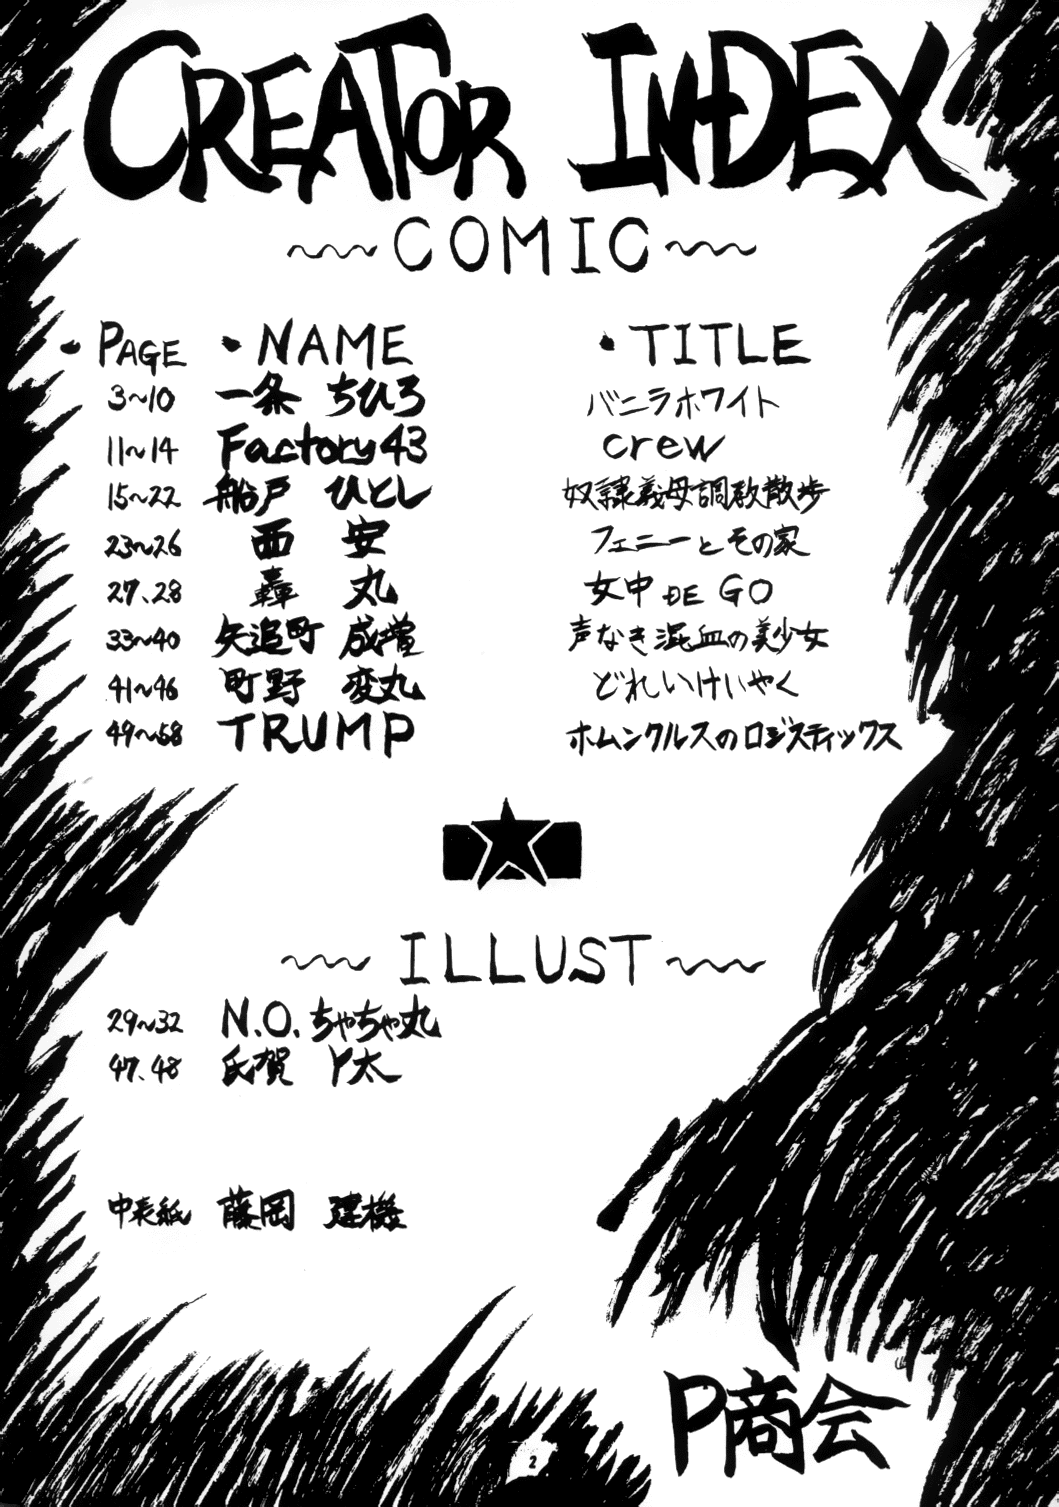 CREATOR INDEX
COMIC
・PAGE ・NAME ・TITLE
3~10 一条 ちひろ バニラホワイト
11~14 Factory43 crew
15~22 船戸 ひとし 奴隷義母調教散歩
23~26 西 安 フェニーとその家
27.28 轟 丸 女中 DE GO
33~40 矢追町 成増 声なき混血の美少女
41~46 町野 変丸 どれいけいやく
49~58 TRUMP ホムンクルスのロジスティックス
ILLUST
29~32 N.O.ちゃちゃ丸
47.48 氏賀 Y太
中表紙 藤岡 建機
P商会
2